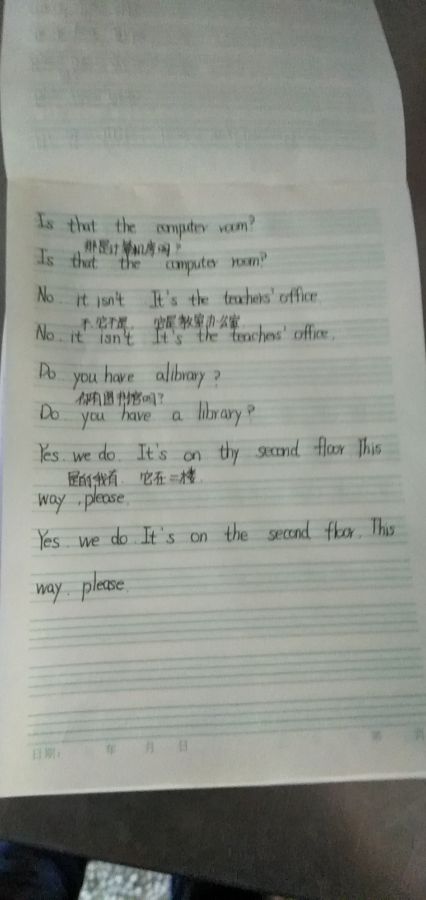 Is that the computer room?
那是计算机房吗?
Is that the computer room?
No. it isn't It's the teachers' office.
不,它不是. 它是教室办公室.
No. it isn't It's the teachers' office.
Do you have alibrary?
你有图书馆吗?
Do you have a library?
Yes. we do. It's on thy second floor This
是的我有. 它在二楼.
way, please.
Yes. we do. It's on the second floor. This
way. please.
日期: 年 月 日
第 页